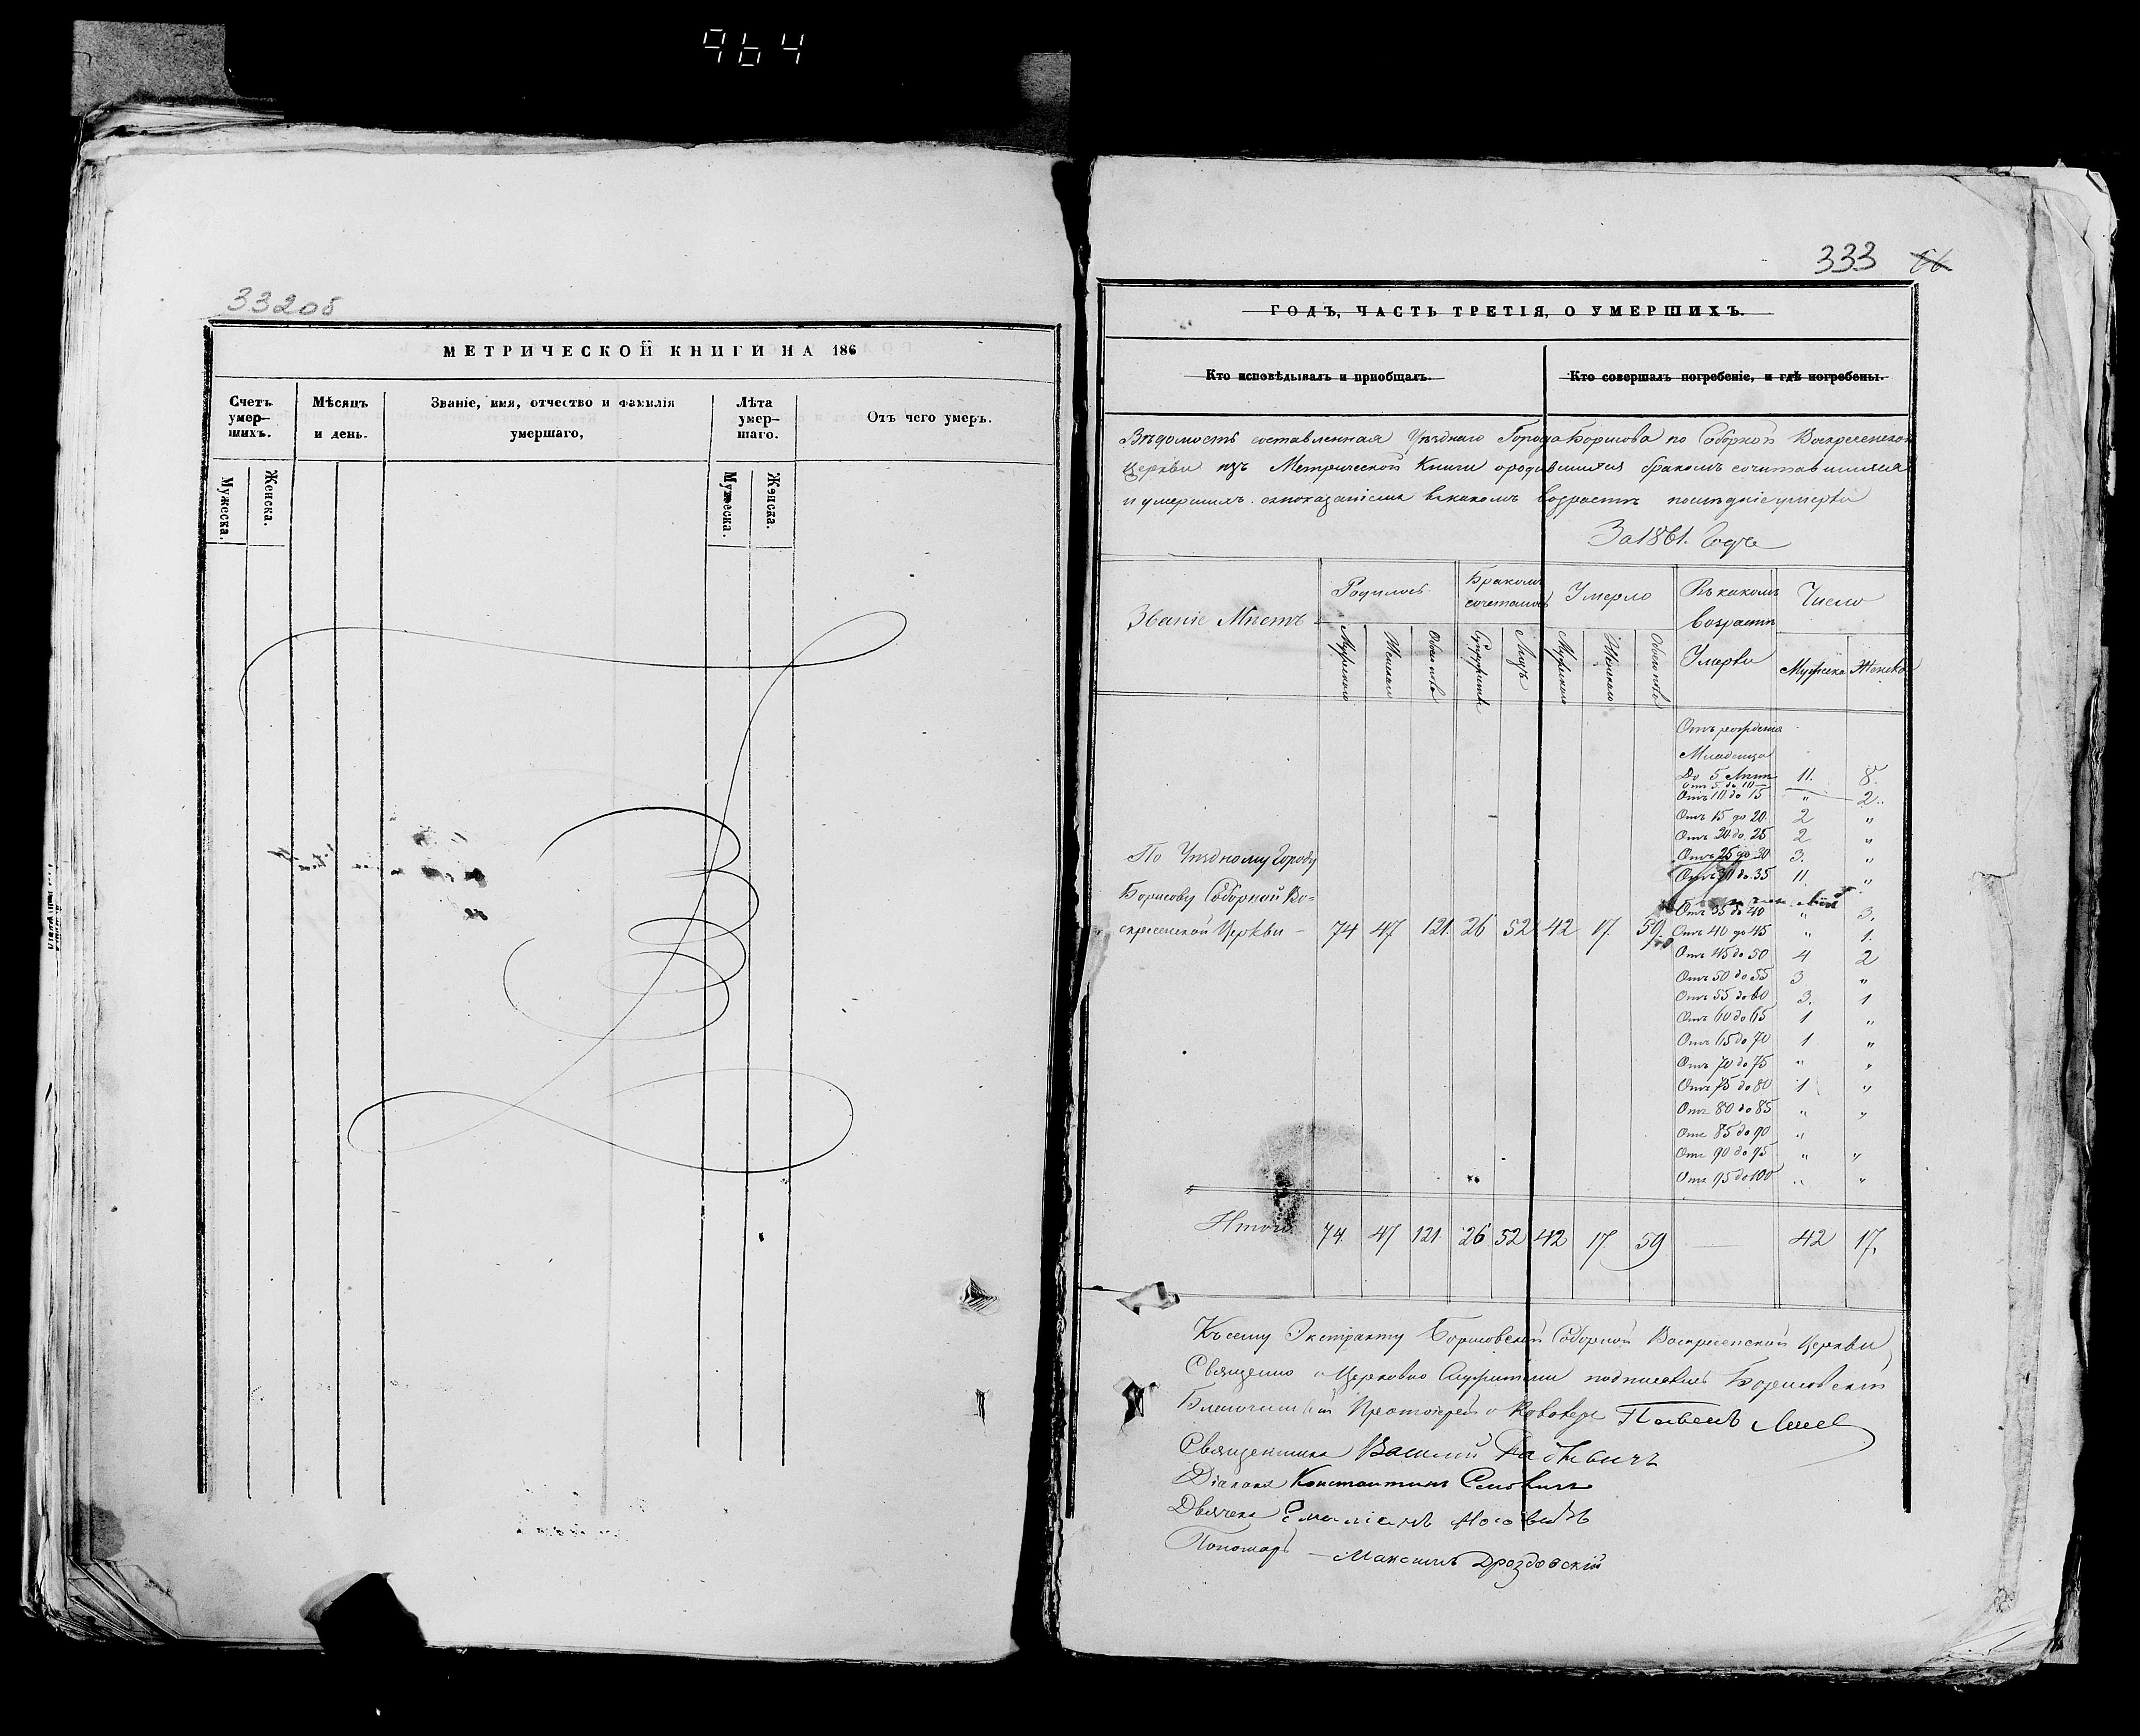 964
332об
МЕТРИЧЕСКОЙ КНИГИ НА 186
Счетъ умер–шихъ.
Мѣсяцъ и день.
Званіе, имя, отчество и фамилія умершаго,
Лѣта умер–шаго.
Отъ чего умеръ.
Мужеска.
Женска.
Мужеска.
Женска.
333 66
ГОДЪ, ЧАСТЬ ТРЕТІЯ, О УМЕРШИХЪ.
Кто исповѣдывалъ и пріобщалъ.
Кто совершалъ погребеніе, и гдѣ погребены.
Вѣдомость составленная Уѣзднаго Города Борисова по Соборной Воскресенской
Церкви изъ Метрической Книги о родившихся бракомъ сочитавшихся
и умершихъ съ показаніемъ въ какомъ возрастѣ послѣдніе умерли
За 1861. Годъ
Званіе Мѣстъ
Родилось
Бракомъ сочеталось
Умерло
Въ какомъ возрастѣ Умерли
Число
Мужеска
Женска
Обоего пола
Супружествъ
Лицъ
Мужеска
Женска
Обоего пола
Мужеска
Женска
Отъ рожденія
Младенца
До 5 Лѣтъ 11. 8.
Отъ 5 до 10
Отъ 10 до 15 " 2.
Отъ 15 до 20 2 "
Отъ 20 до 25 2 "
Отъ 25 до 30 3. "
Отъ 30 до 35 11 "
Отъ 35 до 40 " 3.
По Уѣздному Городу
Борисову Соборной Во=
скресенской Церкви – 74 47 121. 26 52 42 17. 59.
Отъ 40 до 45 " 1.
Отъ 45 до 50 4 2
Отъ 50 до 55 3 "
Отъ 55 до 60 3. 1
Отъ 60 до 65 1 "
Отъ 65 до 70 1 "
Отъ 70 до 75 " "
Отъ 75 до 80 1 "
Отъ 80 до 85 " "
Отъ 85 до 90 "
Отъ 90 до 95 " "
Отъ 95 до 100 " "
Итого 74. 47 121 26 52 42 17. 59 — 42 17.
Къ сему Экстракту Борисовской Соборной Воскресенской Церкви
Священно и Церковно Служители подписались Борисовскій
Благочинный Протоіерей Павелъ
Священникъ Василій
Діаконъ Константинъ
Дьячекъ
Пономарь – Максимъ Дроздовскій